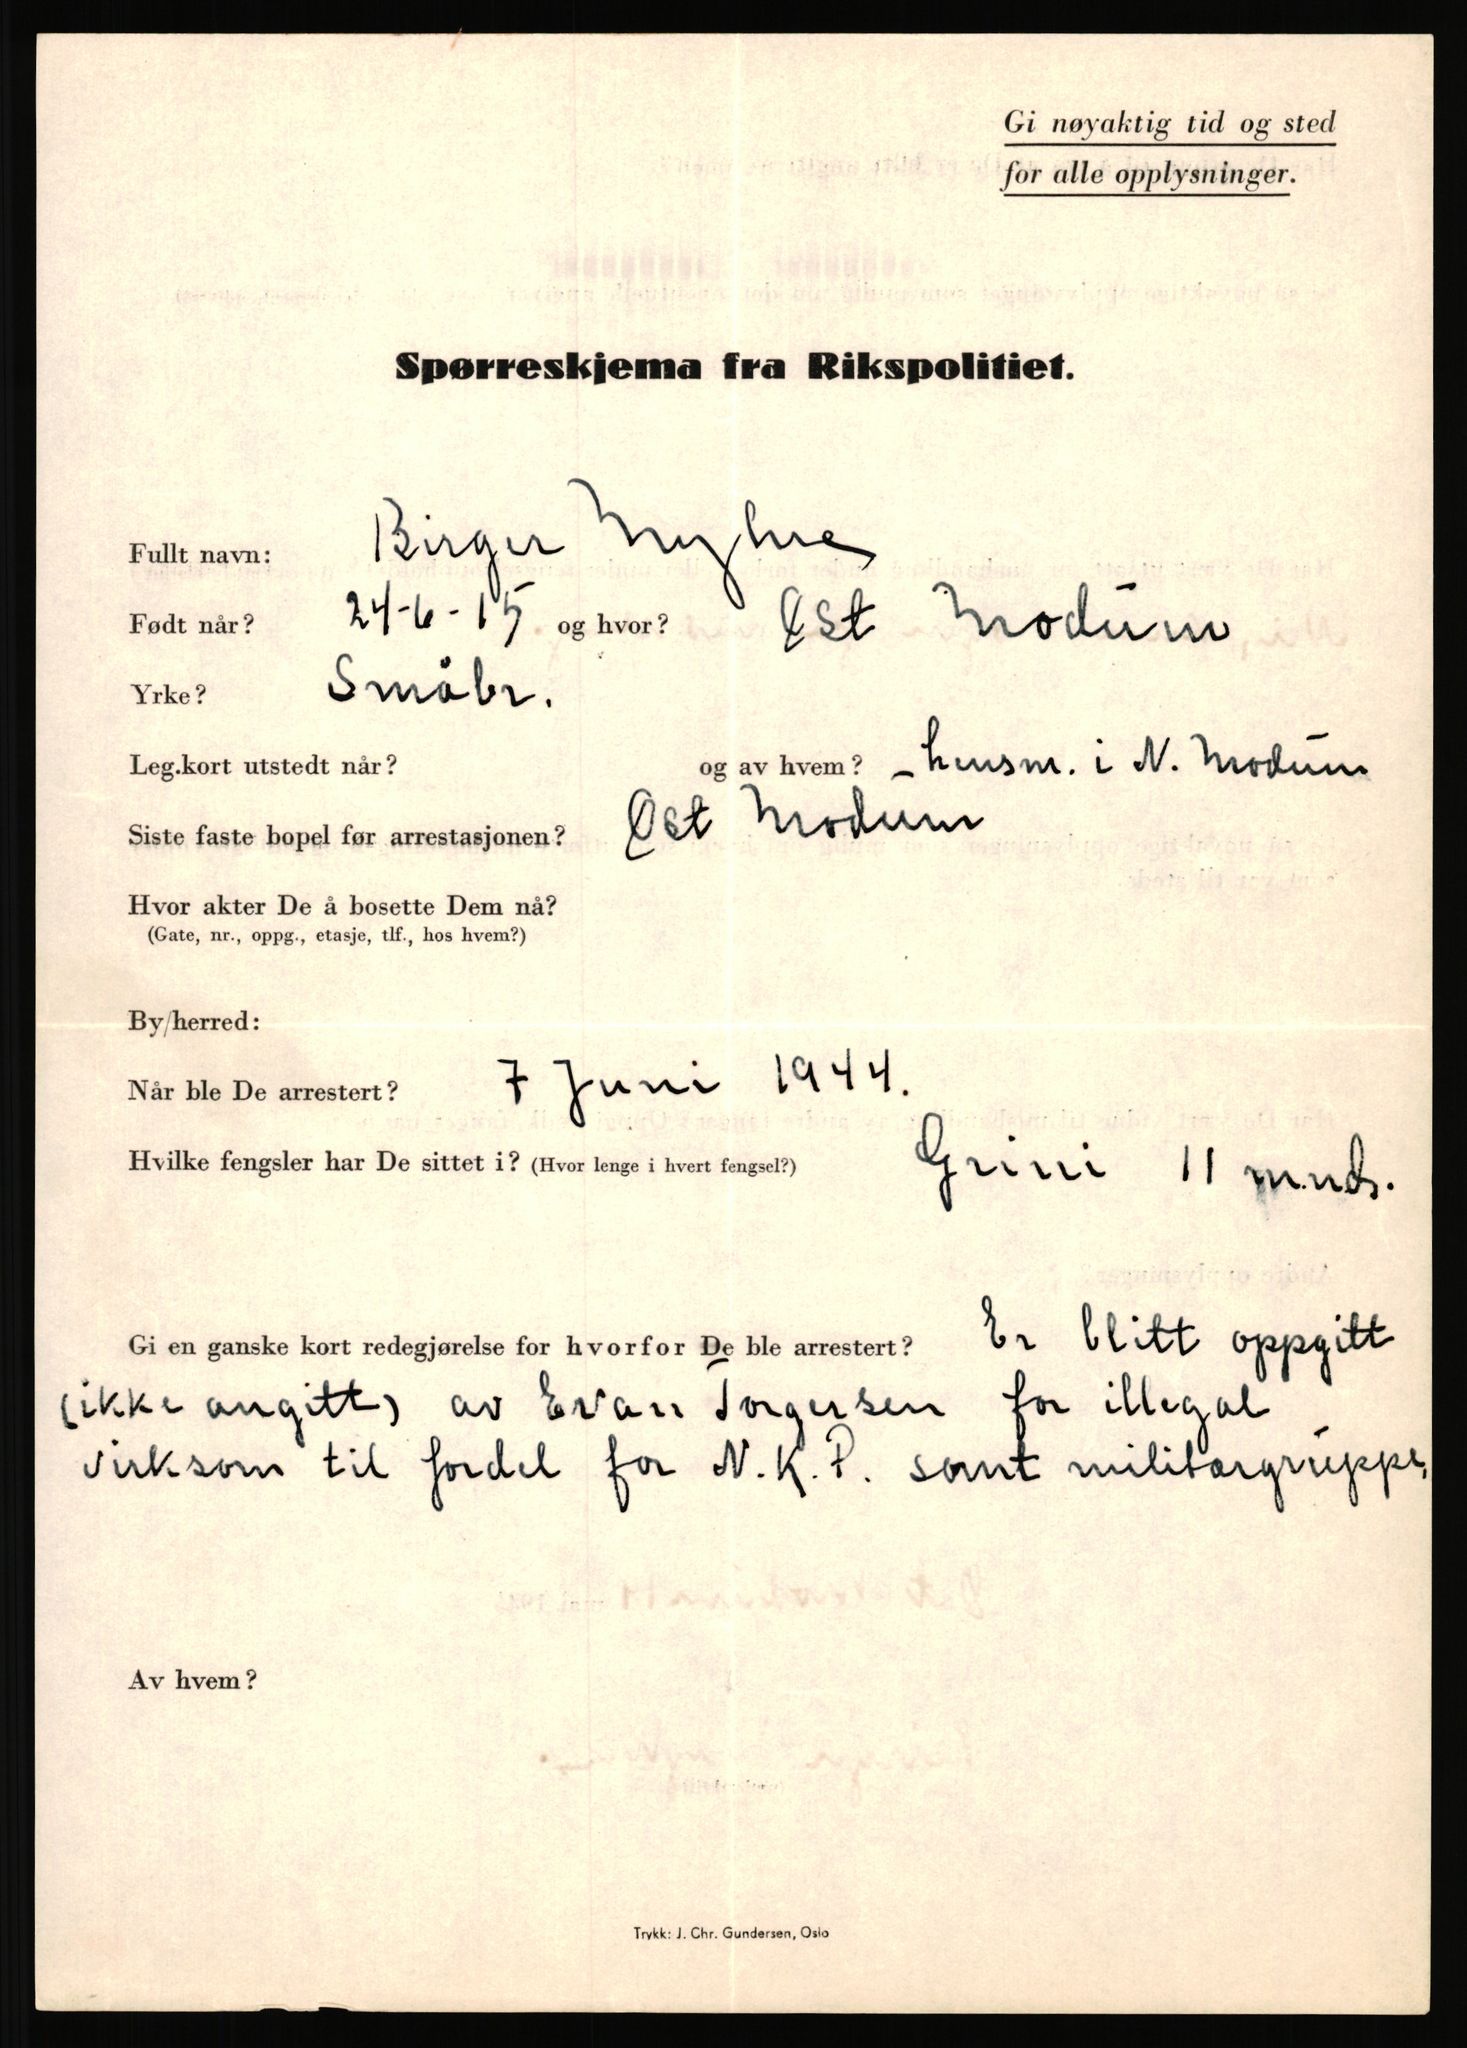 Gi nøyaktig tid og sted
for alle opplysninger.
Spørreskjema fra Rikspolitiet.
Fullt navn: Birger Myhre
Født når? 24-6-15 og hvor? Øst Modum
Yrke? Småbr.
Leg.kort utstedt når? og av hvem? – lensm. i N. Modum
Siste faste bopel før arrestasjonen? Øst Modum
Hvor akter De å bosette Dem nå?
(Gate, nr., oppg., etasje, tlf., hos hvem?)
By/herred:
Når ble De arrestert? 7 Juni 1944.
Hvilke fengsler har De sittet i? (Hvor lenge i hvert fengsel?) Grini 11 mnds.
Gi en ganske kort redegjørelse for hvorfor De ble arrestert? Er blitt oppgitt
(ikke angitt) av Evan Torgersen for illegal
virksom til fordel for N.K.P. samt militærgruppe,
Av hvem?
Trykk: J. Chr. Gundersen, Oslo